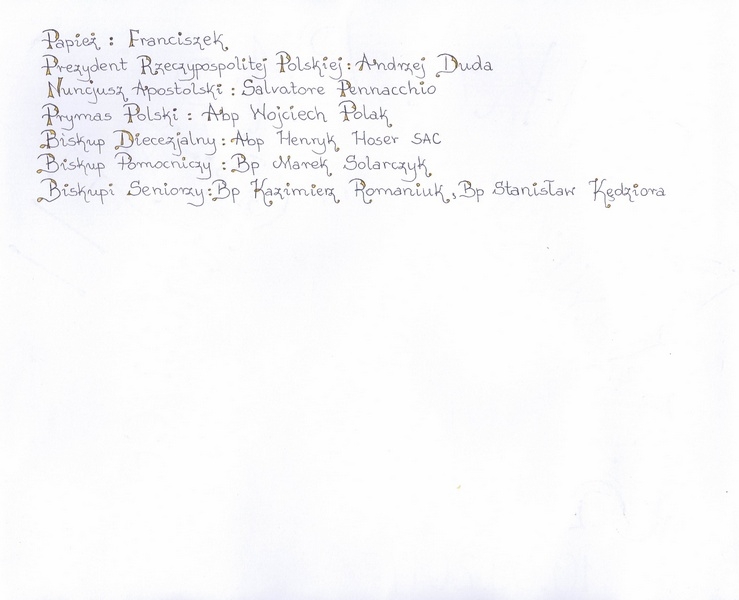 Papież : Franciszek
Prezydent Rzeczypospolitej Polskiej : Andrzej Duda
Nuncjusz Apostolski : Salvatore Pennacchio
Prymas Polski : Abp Wojciech Polak
Biskup Diecezjalny : Abp Henryk Hoser SAC
Biskup Pomocniczy : Bp Marek Solarczyk
Biskupi Seniorzy : Bp Kazimierz Romaniuk, Bp Stanisław Kędziora